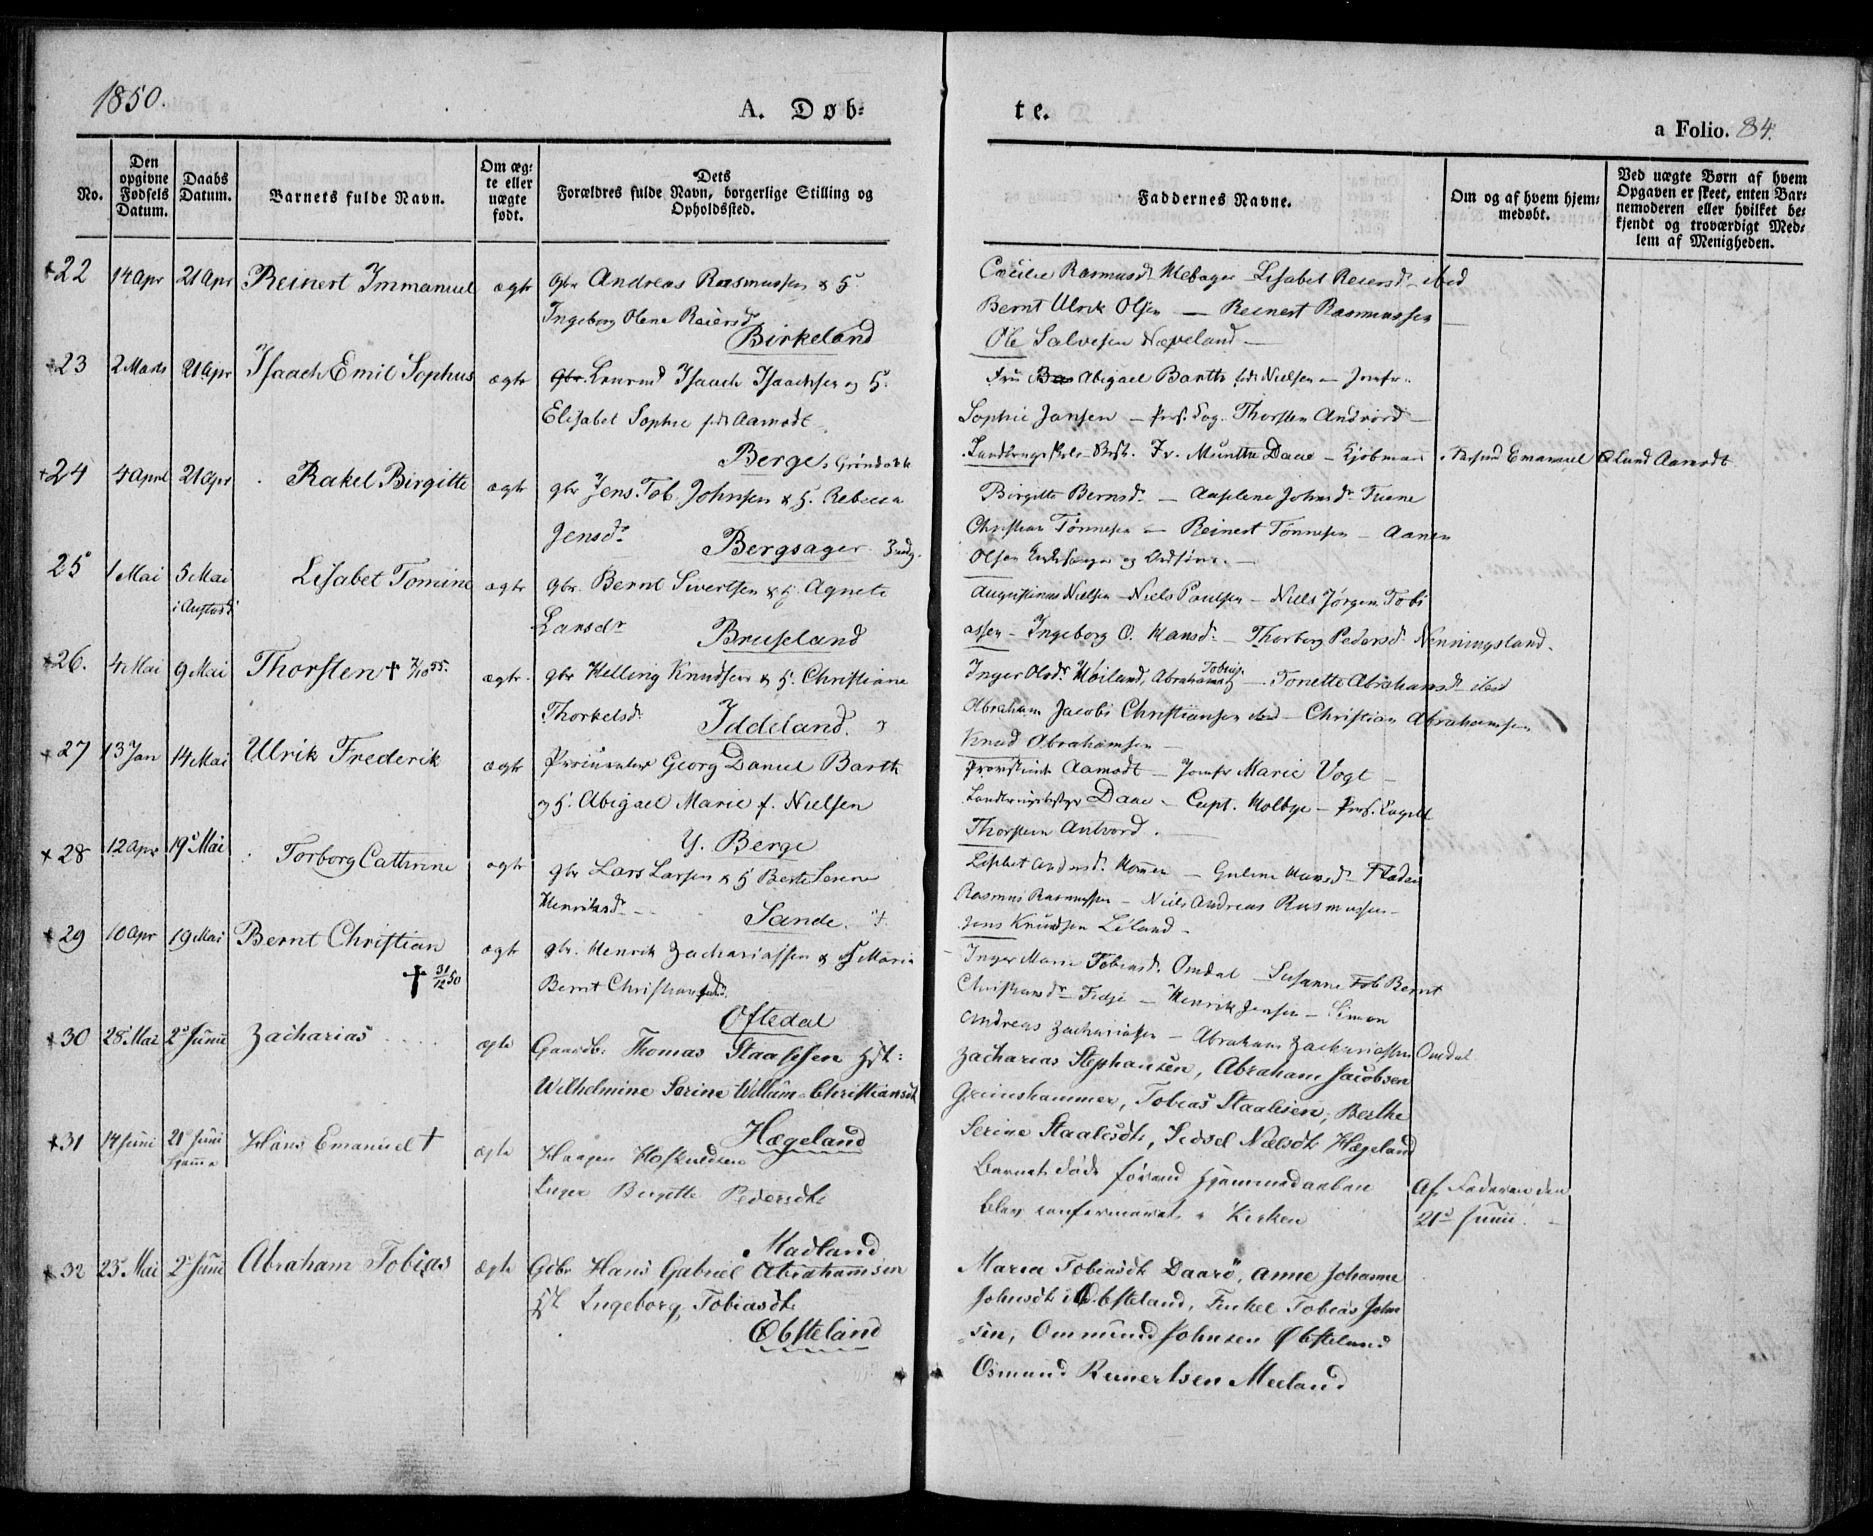 1850.
A. Døb-
te.
a Folio. 84.
No.
Den opgivne Fødsels Datum.
Daabs Datum.
Barnets fulde Navn.
Om ægte eller uægte født.
Dets Forældres fulde Navn, borgerlige Stilling og Opholdssted.
Faddernes Navne.
Om og af hvem hjemmedøbt.
Ved uægte Børn af hvem Opgaven er skeet, enten Barnemoderen eller hvilket bekjendt og troværdigt Medlem af Menigheden.
22 14 Apr 21 Apr Reinert Immanuel ægte Gbr Andreas Rasmussen & H.
Ingeborg Olene Reiersd.
Birkeland
Cæcilie Rasmusd. Lisabet Reiersd. ibid
Bernt Ulrik Olsen — Reinert Rasmussen
Ole Salvesen
23 2 Marts 21 Apr Isaach Emil Sophus ægte Isaach Isaachsen og H.
Elisabet Sophie født Aamodt
Berge, Grøndokk
Fru Abigael Barth født Nielsen — Jomfr.
Sophie Jansen — Thorsten
Munthe Daae — Kjøbmand Emanuel Lund Aamodt
24 4 April 21 Apr Rakel Birgitte ægte gbr Jens Tob. Johnsen & H. Rebecca
Jensdr.
Bergsager
Birgitte Berntsd. — Johnsd.
Christian Tønnesen — Reinert Tønnesen — Aanen
Olsen
25 1 Mai 5 Mai Lisabet Tomine ægte gbr. Bernt Sivertsen & H. Agnete
Larsdr
Bruseland
Augustinus Nielsen — Niels Paulsen — Niels Jørgen Tobi
assen — Ingeborg O. Hansd. — Thorborg Pedersd. Nenningsland.
26. 4 Mai 9 Mai Thorsten † ægte gbr Helling Knudsen & H. Christiane
Thorkelsd.
Iddeland.
Inger Olsdr. Høiland, Tobias — Tonette Abrahamsd. ibid
Abraham Jacobs Christiansen ibid — Christian Abrahamsen
Knud Abrahamsen —
27 13 Jan 14 Mai Ulrik Frederik ægte Procurator Georg Daniel Barth
og H. Abigael Marie f. Nielsen
Y. Berge
Aamodt — Jomfr Marie Vogt —
Daae — Capt. Holbye —
Thorstein
28 12 Apr 19 Mai Torborg Cathrine ægte gbr Lars Larsen & H Berte Serene
Henriksdr.
Sande.
Lisbet Andersd. — Guline Hansd.
Rasmus Rasmussen — Niels Andreas Rasmussen —
Jens Knudsen
29 10 Apr 19 Mai Bernt Christian ægte gbr. Henrik Zachariassen & H Maria
† 31/12 50
Bernt Christiansd.
Oftedal
Inger Marie Tobiasd. Omdal — Susanne Tob Bernt
Christiansdr — Henrik Jensen — Simon
Andreas Zachariasen — Abraham Zachariassen Omdal
30 28 Mai 2 Junii Zacharias ægte Gaardb: Thomas Staalesen Hst:
Wilhelmine Serine William Christiansdt
Hægeland
Zacharias Stephansen, Abraham Jacobsen
Greimshammer, Tobias Staalesen, Berthe
Serine Staalesdt, Sidsel Nælsdt Hægeland
31 14 Juni 21 Juni Hjemme Hans Emanuel † ægte Haagen Hoskuldsen
Inger Birgitte Pedersdt
Madland
Barnet døde førend Hjemmedaaben
blev confirmeret i Kirken
Af Faderen den
21de Junii.
32 23 Mai 2 Juni Abraham Tobias ægte Gdbr Hans Gabriel Abrahamsen
Hst Ingeborg Tobiasdt
Øbsteland
Maria Tobiasdt Daarø, Anne Johanne
Johnsdt Øbsteland, Tenkel Tobias John
sen, Ommund Johnsen Øbsteland
Osmund Reinertsen Meeland